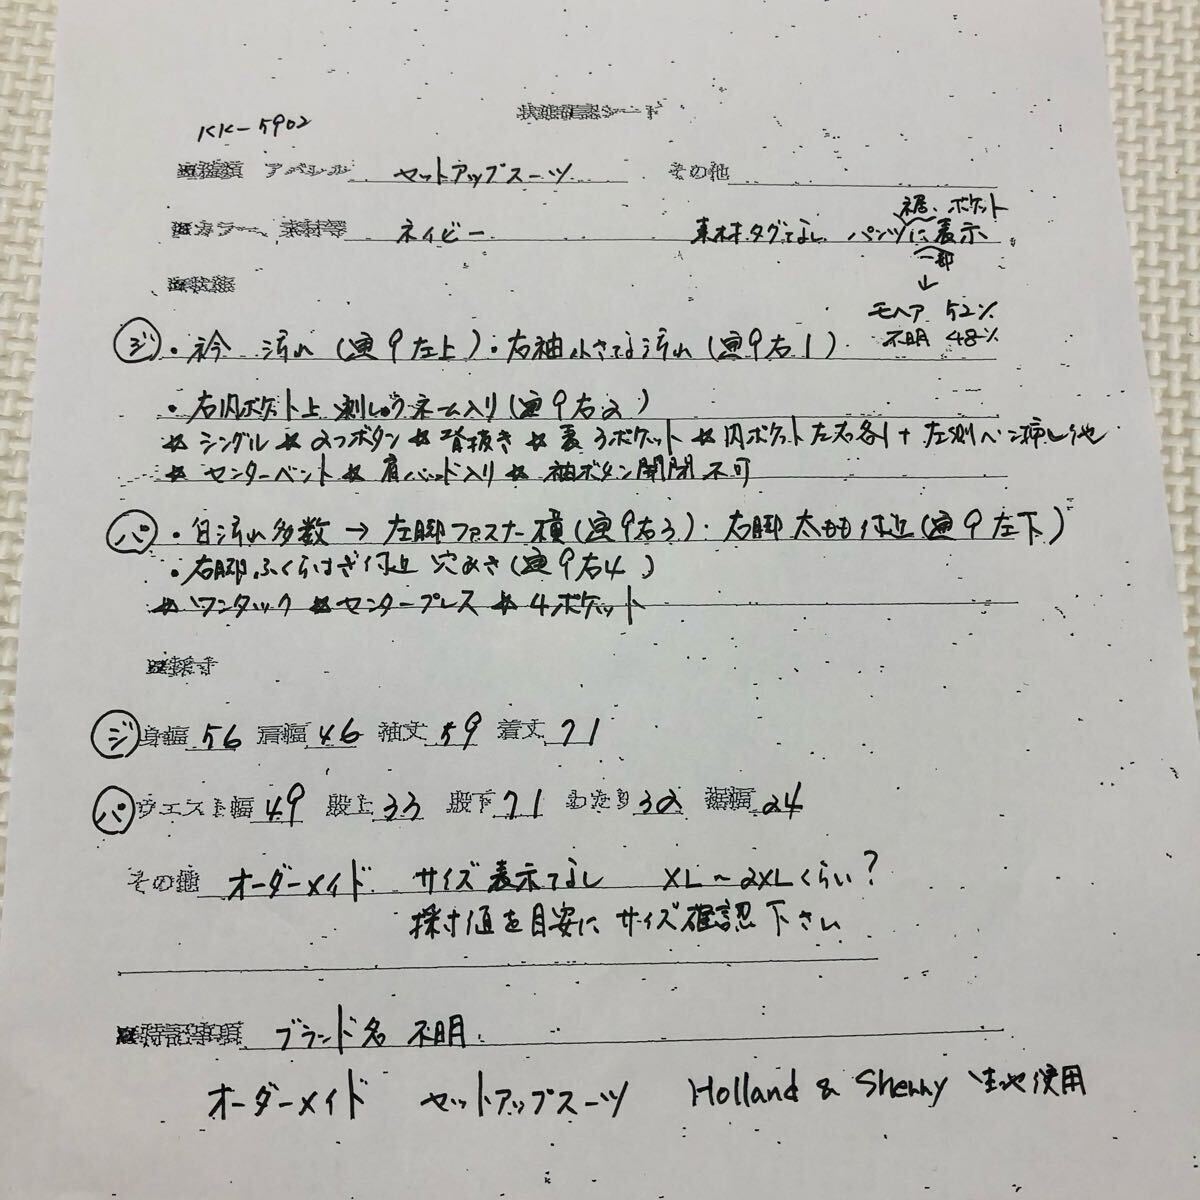 状態確認シート
KK-5902
アパレル セットアップスーツ その他
裾、ポケット
カラー、素材等 ネイビー 素材タグなし パンツに表示
一部
↓
■状態
モヘア 52%
不明 48%
㋛・衿 汚れ(画9左上)・右袖小さな汚れ(画9右1)
・右内ポケット上 刺しゅうネーム入り(画9右2)
★シングル ★2つボタン ★背抜き ★表3ポケット ★内ポケット左右各1+左側ペン挿し他
★センターベント ★肩パッド入り ★袖ボタン開閉不可
パ・白汚れ多数→左脚ファスナー横(画9右3)・右脚太もも付近(画9左下)
・右脚ふくらはぎ付近 穴あき(画9右4)
★ワンタック ★センタープレス ★4ポケット
■採寸
ジ 身幅 56 肩幅 46 袖丈 59 着丈 71
パ ウエスト幅 49 股上 33 股下 71 わたり 32 裾幅 24
その他 オーダーメイド サイズ表示なし XL～2XLくらい?
採寸値を目安にサイズ確認下さい
■特記事項 ブランド名 不明
オーダーメイド セットアップスーツ Holland & Sherry 生地使用